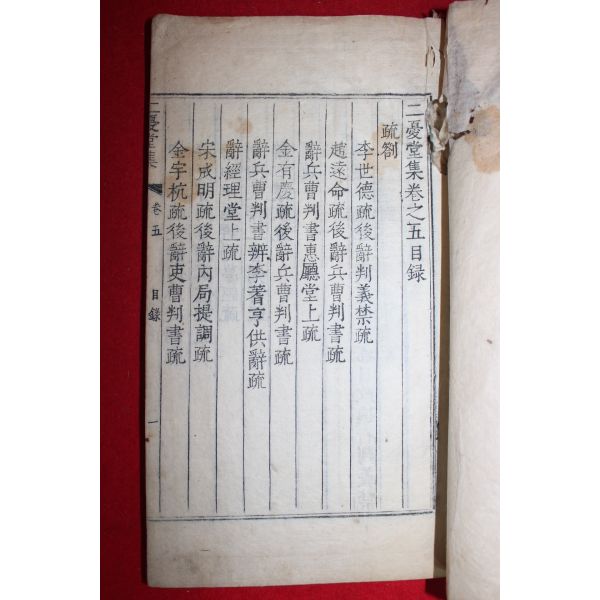 二憂堂集卷之五目録
疏劄
李世德疏後辭判義禁疏
趙遠命疏後辭兵曹判書疏
辭兵曹判書惠廳堂上疏
金有慶疏後辭兵曹判書疏
辭兵曹判書辨李著亨供辭疏
辭經理堂上疏
宋成明疏後辭內局提調疏
金宇杭疏後辭吏曹判書疏
二憂堂集 卷五 目錄 一